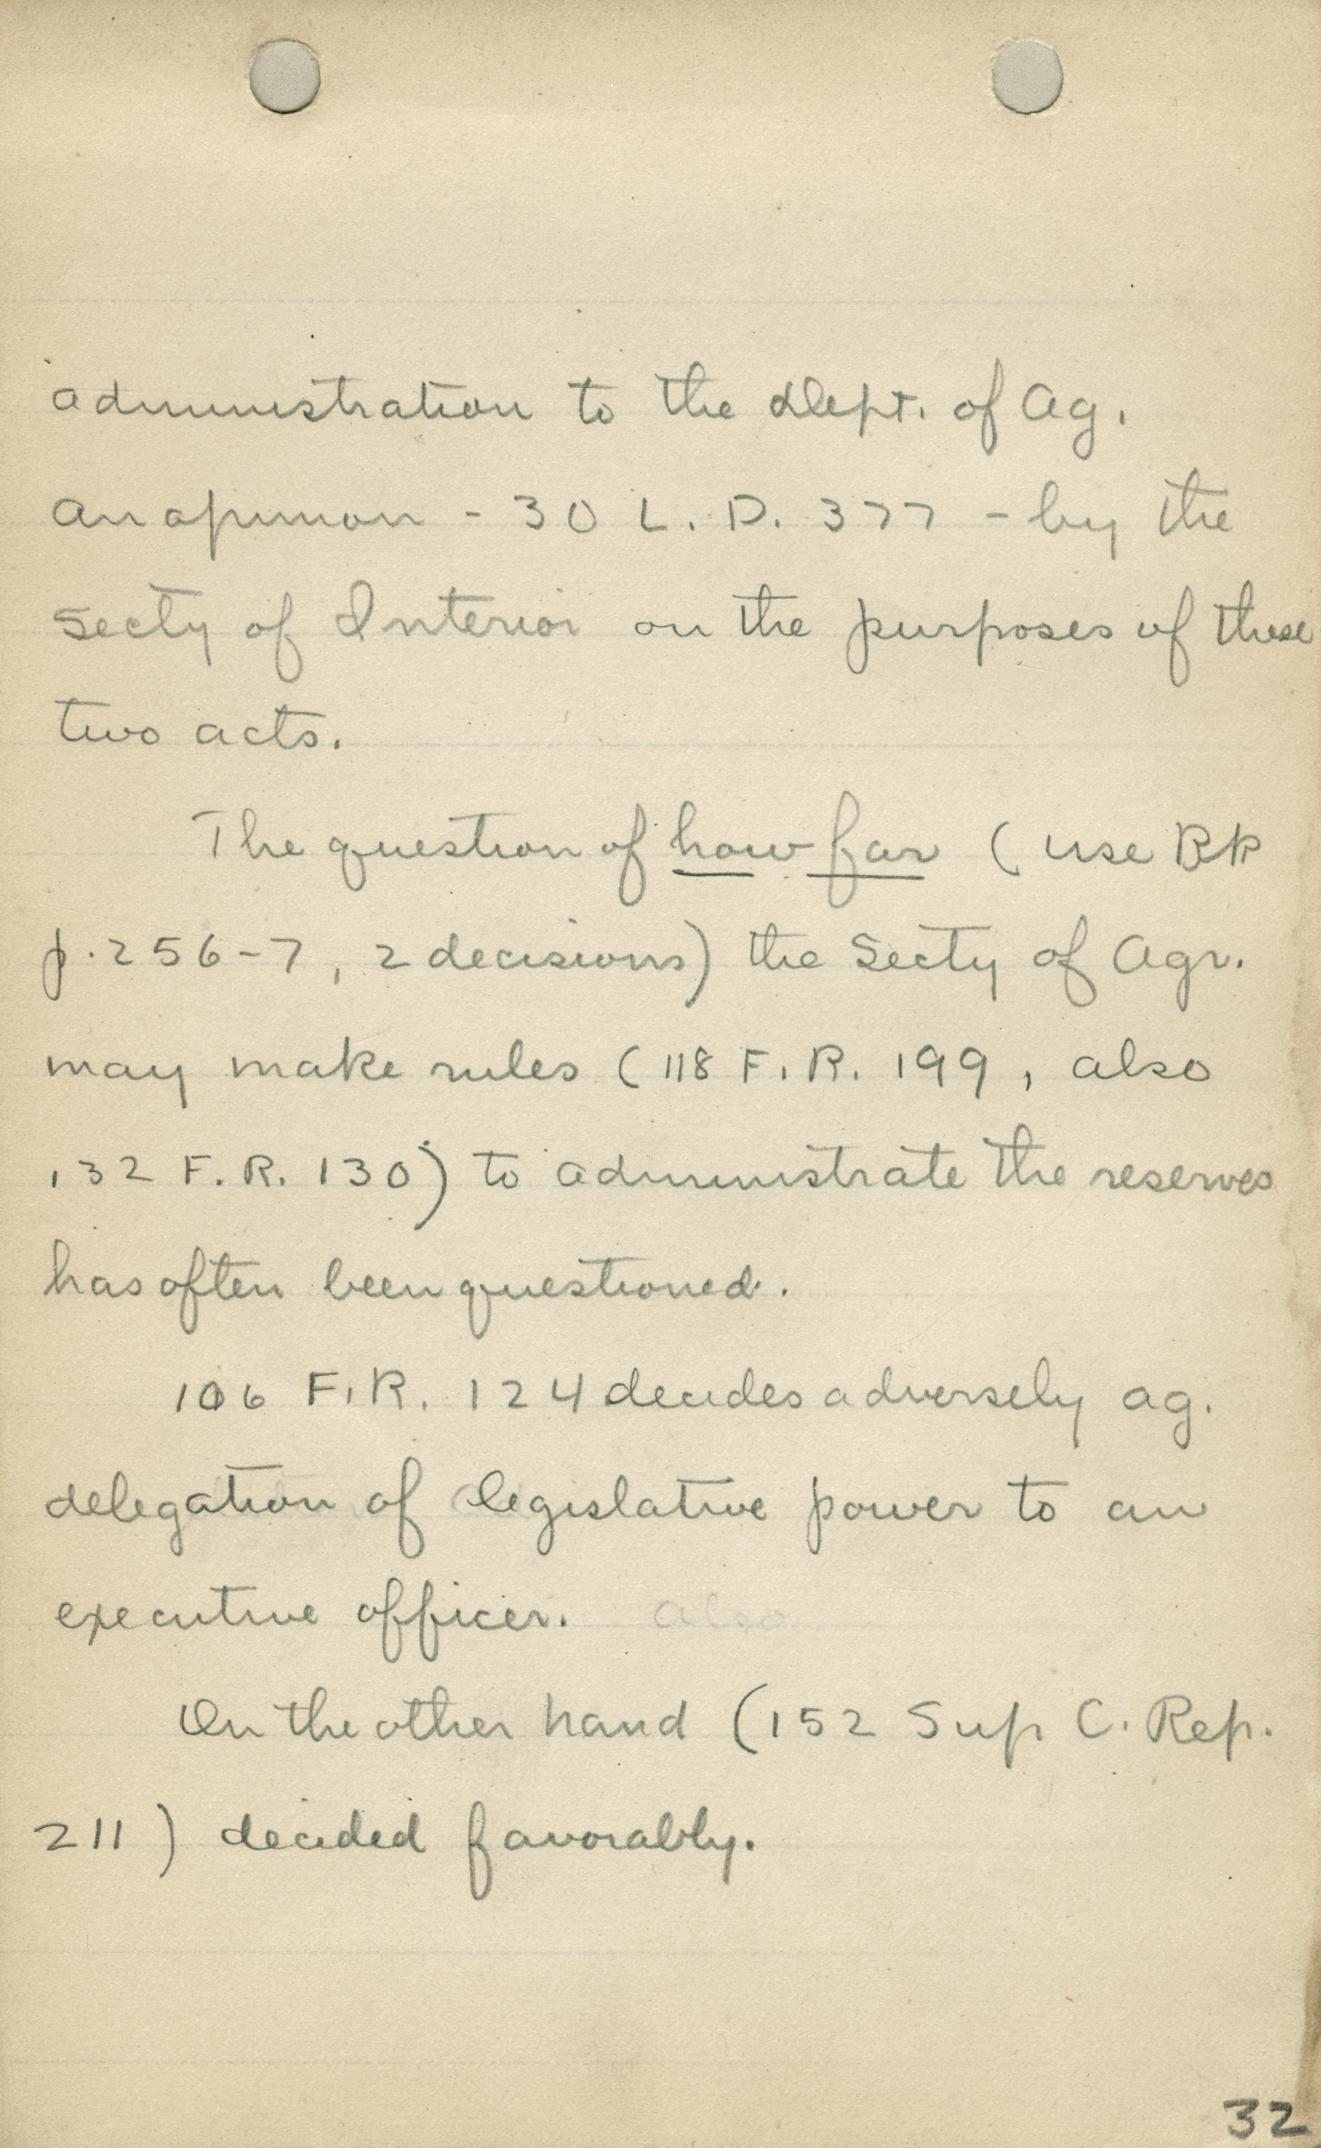 administration to the Dept. of Ag.
An opinion - 30 L. D. 377 - by the
Secty of Interior on the purposes of these
two acts.
The question of how far (use Bk
p. 256-7, 2 decisions) the Secty of Agr.
may make rules (118 F. R. 199, also
132 F. R. 130) to administrate the reserves
has often been questioned.
106 F. R. 124 decides adversely ag.
delegation of legislative power to an
executive officer. also
On the other hand (152 Sup C. Rep.
211) decided favorably.
32